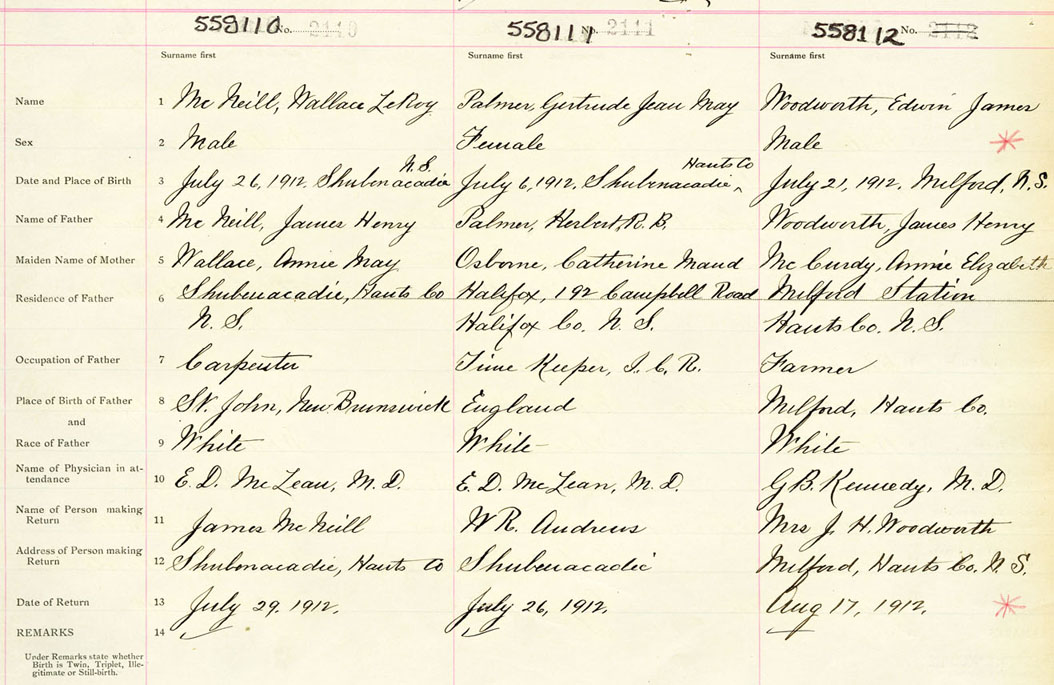 558110 No. 2110 558111 No. 2111 558112 No. 2112
Surname first Surname first Surname first
Name 1 Mc Neill, Wallace LeRoy Palmer, Gertrude Jean May Woodworth, Edwin James
Sex 2 Male Female Male
N.S. Hants Co
Date and Place of Birth 3 July 26, 1912. Shubenacadie July 6, 1912, Shubenacadie ^ July 21, 1912. Milford, N.S.
Name of Father 4 Mc Neill, James Henry Palmer, Herbert R. B. Woodworth, James Henry
Maiden Name of Mother 5 Wallace, Annie May Osborne, Catherine Maud Mc Curdy, Annie Elizabeth
Residence of Father 6 Shubenacadie, Hants Co Halifax, 192 Campbell Road Milford Station
N. S. Halifax Co. N. S. Hants Co. N. S.
Occupation of Father 7 Carpenter Time Keeper, I. C. R. Farmer
Place of Birth of Father 8 St. John, New Brunswick England Milford, Hants Co.
and
Race of Father 9 White White White
Name of Physician in at-
tendance 10 E. D. McLean, M. D. E. D. McLean, M. D. G B. Kennedy, M. D.
Name of Person making
Return 11 James Mc Neill W R. Andrews Mrs J. H. Woodworth
Address of Person making
Return 12 Shubenacadie, Hants Co Shubenacadie Milford, Hants Co. N. S.
Date of Return 13 July 29. 1912. July 26, 1912. Aug 17, 1912.
REMARKS 14
Under Remarks state whether
Birth is Twin, Triplet, Ille-
gitimate or Still-birth.